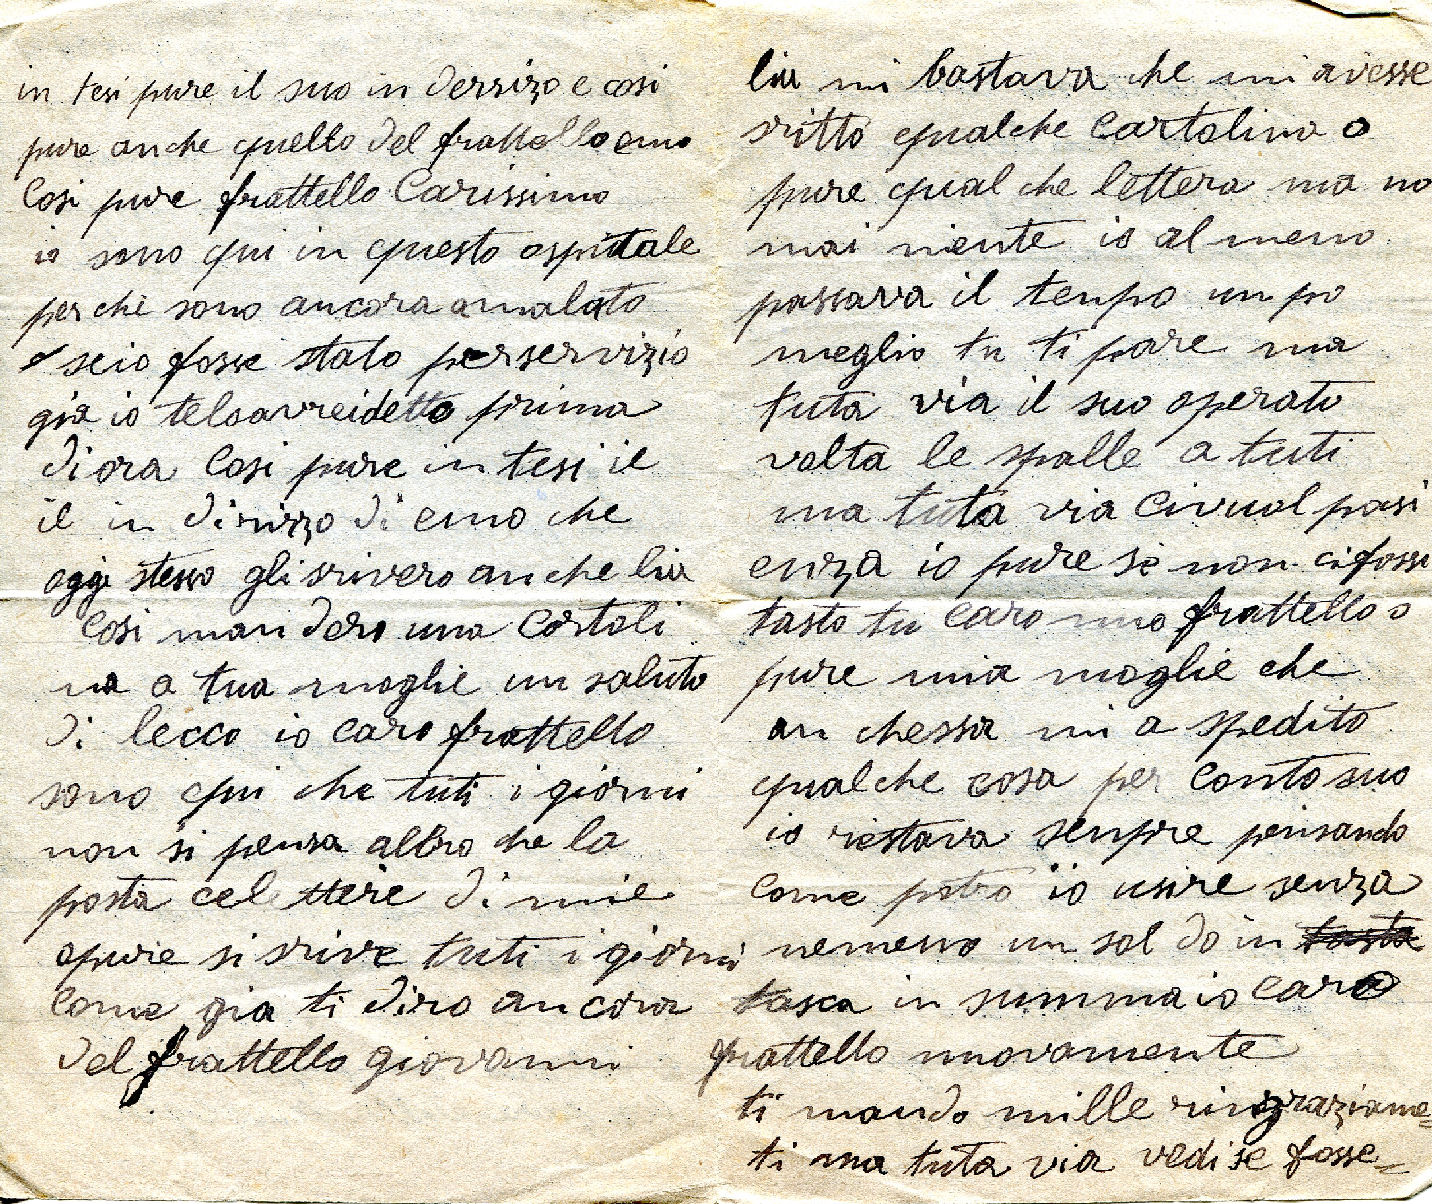 in tesi pure il suo in derrizo e cosi
pure anche quello del frattello emo
Cosi pure frattello Carissimo
io sono qui in questo ospitale
per che sono ancora amalato
e seio fosse stato perservizio
gia io teloavreidetto prima
di ora Cosi pure in tesi il
il in dirizzo di emo che
oggi stesso gli srivero an che lui
Cosi man dero una Cartoli
na a tua moglie un saluto
di lecco io caro frattello
sono qui che tuti i giorni
non si pensa altro che la
posta cele ttere di mie
opure si srive tuti i giorni
Come gia ti diro an cora
del frattello giovanni
lui mi bastava che mi avesse
sritto qualche Cartolina o
pure qual che lettera ma no
mai niente io al meno
passava il tenpo un po
meglio tu ti pare ma
tuta via il suo operato
volta le spalle a tuti
ma tuta via Civuol pasi
enza io pure se non cifossi
tasto tu Caro mio frattello o
pure mia moglie che
an chessa mi a spedito
qualche cosa per Conto suo
io restava senpre pensando
Come potro io usire senza
nemeno un sol do in tasta
tasca in summa io Caro
frattello nuovamente
ti mando mille ringraziame=
ti ma tuta via vedi se fosse=